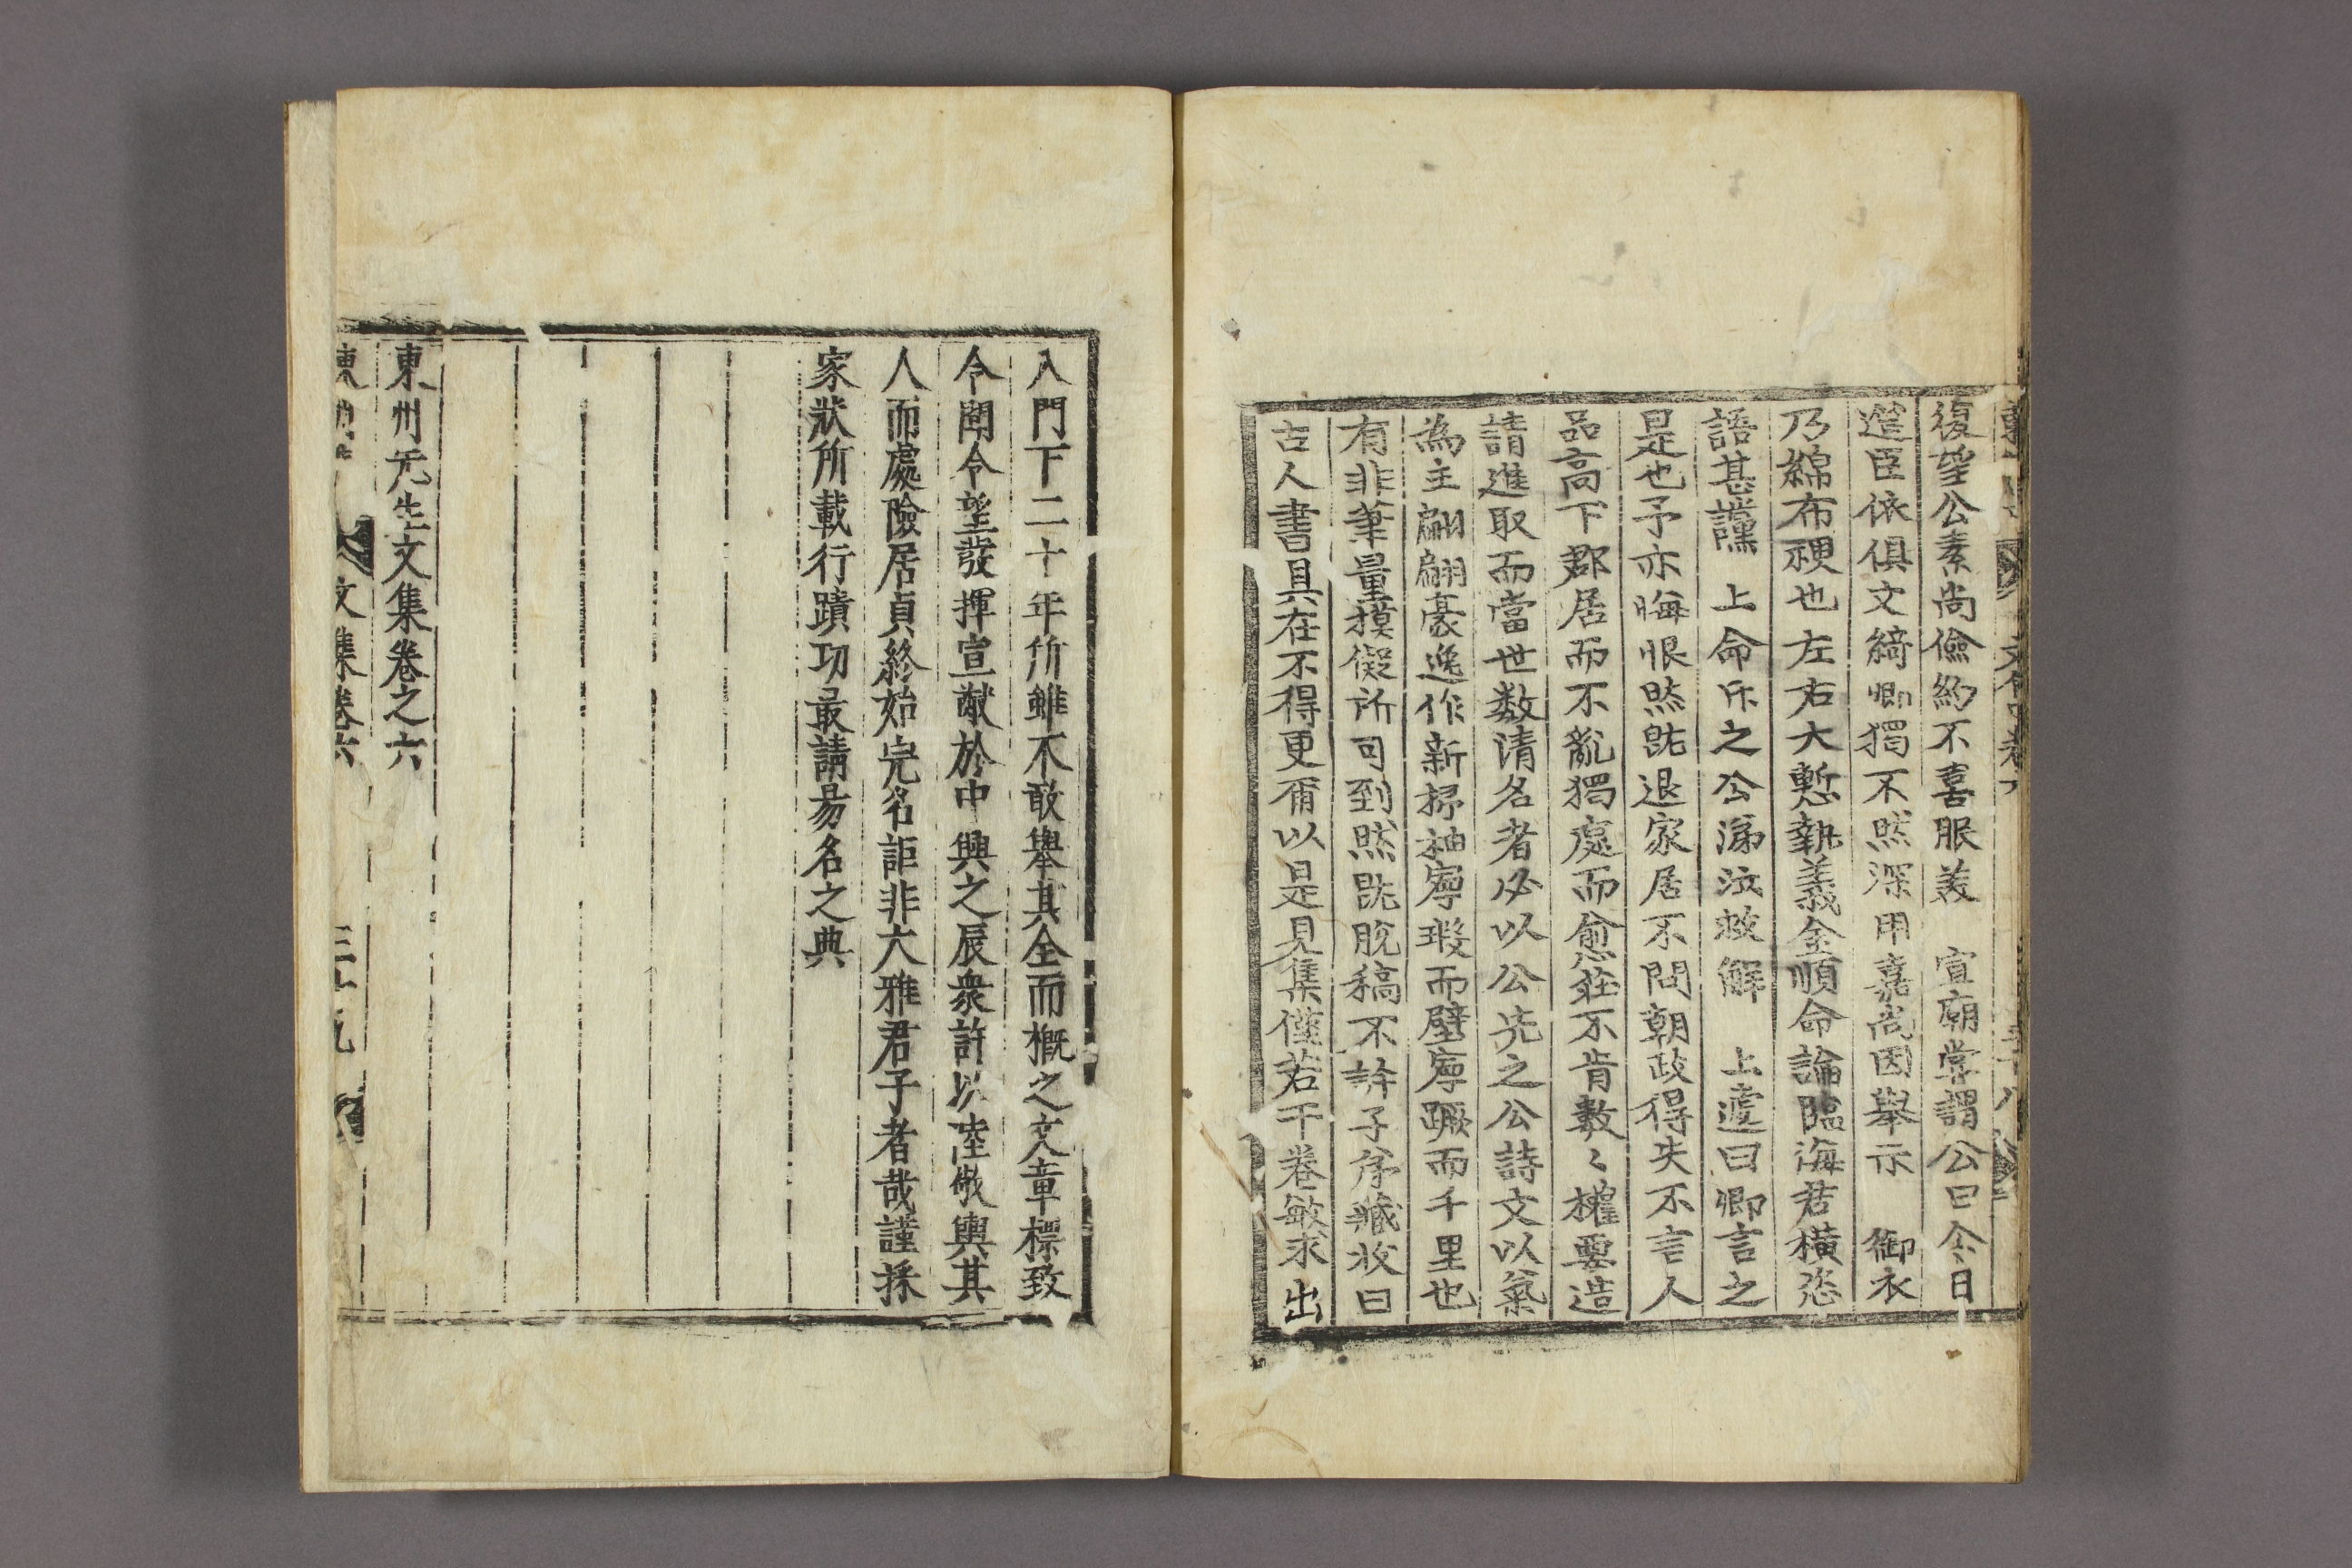 復望公素尚儉約不喜服美 宣廟嘗謂公曰今日
筵臣依俱文綺卿獨不然深用嘉尚因舉示 御衣
乃綿布稬也左右大慙執義金順命論臨海君橫恣
語甚讜 上命斥之公涕泣救解 上遽曰卿言之
是也予亦悔恨然旣退家居不問朝政得失不言人
品高下郡居而不亂獨處而愈莊不肯數〻權要造
請進取而當世数清名者必以公先之公詩文以氣
為主翩翩豪逸作新掃袖寧瑕而璧寧蹶而千里也
有非筆量摸儗所可到然旣脫稿不許子弟藏收曰
古人書具在不得更爾以是見集僅若干卷敏求出
入門下二十年所雖不敢舉其全而槪之文章標致
令聞令望發揮宣猷於中興之辰衆許以陸敬輿其
人而處險居貞終始完名詎非大雅君子者哉謹採
家狀所載行蹟功最請易名之典
東州先生文集卷之六
文集卷六